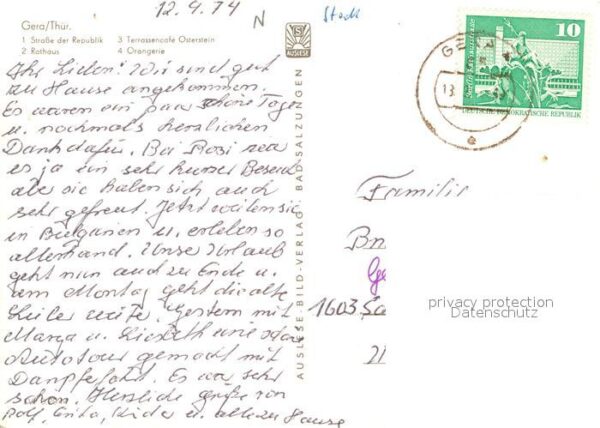 12.4.74
N
Stadt
Gera/Thür.
1 Straße der Republik 3 Terrassencafe Osterstein
2 Rathaus 4 Orangerie
AUSLESE
10
DEUTSCHE DEMOKRATISCHE REPUBLIK
13
Ihr Lieben! Wir sind gut
zu Hause angekommen.
Es waren ein paar schöne Tage
u. nochmals herzlichen
Dank dafür. Bei Rosi war
es ja ein sehr kurzer Besuch
aber sie haben sich auch
sehr gefreut. Jetzt weilen sie
in Bulgarien u. erleben so
allerhand. Unser Urlaub
geht nun auch zu Ende u.
am Montag geht die alte
weite. Gestern mit
u. Liesbeth eine
Autotour gemacht mit
Dampf. Es war sehr
schön. Herzliche Grüße von
Rolf, Kinder u. alle zu Hause
AUSLESE-BILD-VERLAG BAD SALZUNGEN
Familie
Br
Ge
1603
privacy protection
Datenschutz